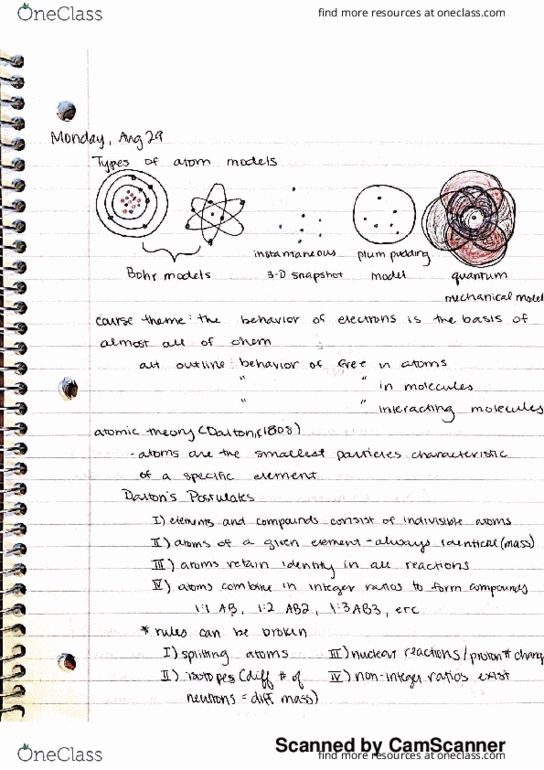 OneClass
find more resources at oneclass.com
Monday, Aug 29
Types of atom models
instantaneous plum pudding
Bohr models 3-D snapshot model quantum
mechanical model
course theme: the behavior of electrons is the basis of
almost all of chem
alt outline: behavior of in atoms
" " in molecules
" " interacting molecules
atomic theory (Dalton, 1808)
- atoms are the smallest particles characteristic
of a specific element
Dalton's Postulates
I) elements and compounds consist of indivisible atoms
II) atoms of a given element - always identical (mass)
III) atoms retain identity in all reactions
IV) atoms combine in integer ratios to form compounds
1:1 AB, 1:2 AB2, 1:3 AB3, etc
* rules can be broken
I) splitting atoms III) nuclear reactions / proton # chang
II) isotopes (diff # of IV) non-integer ratios exist
neutrons = diff mass)
Scanned by CamScanner
OneClass
find more resources at oneclass.com